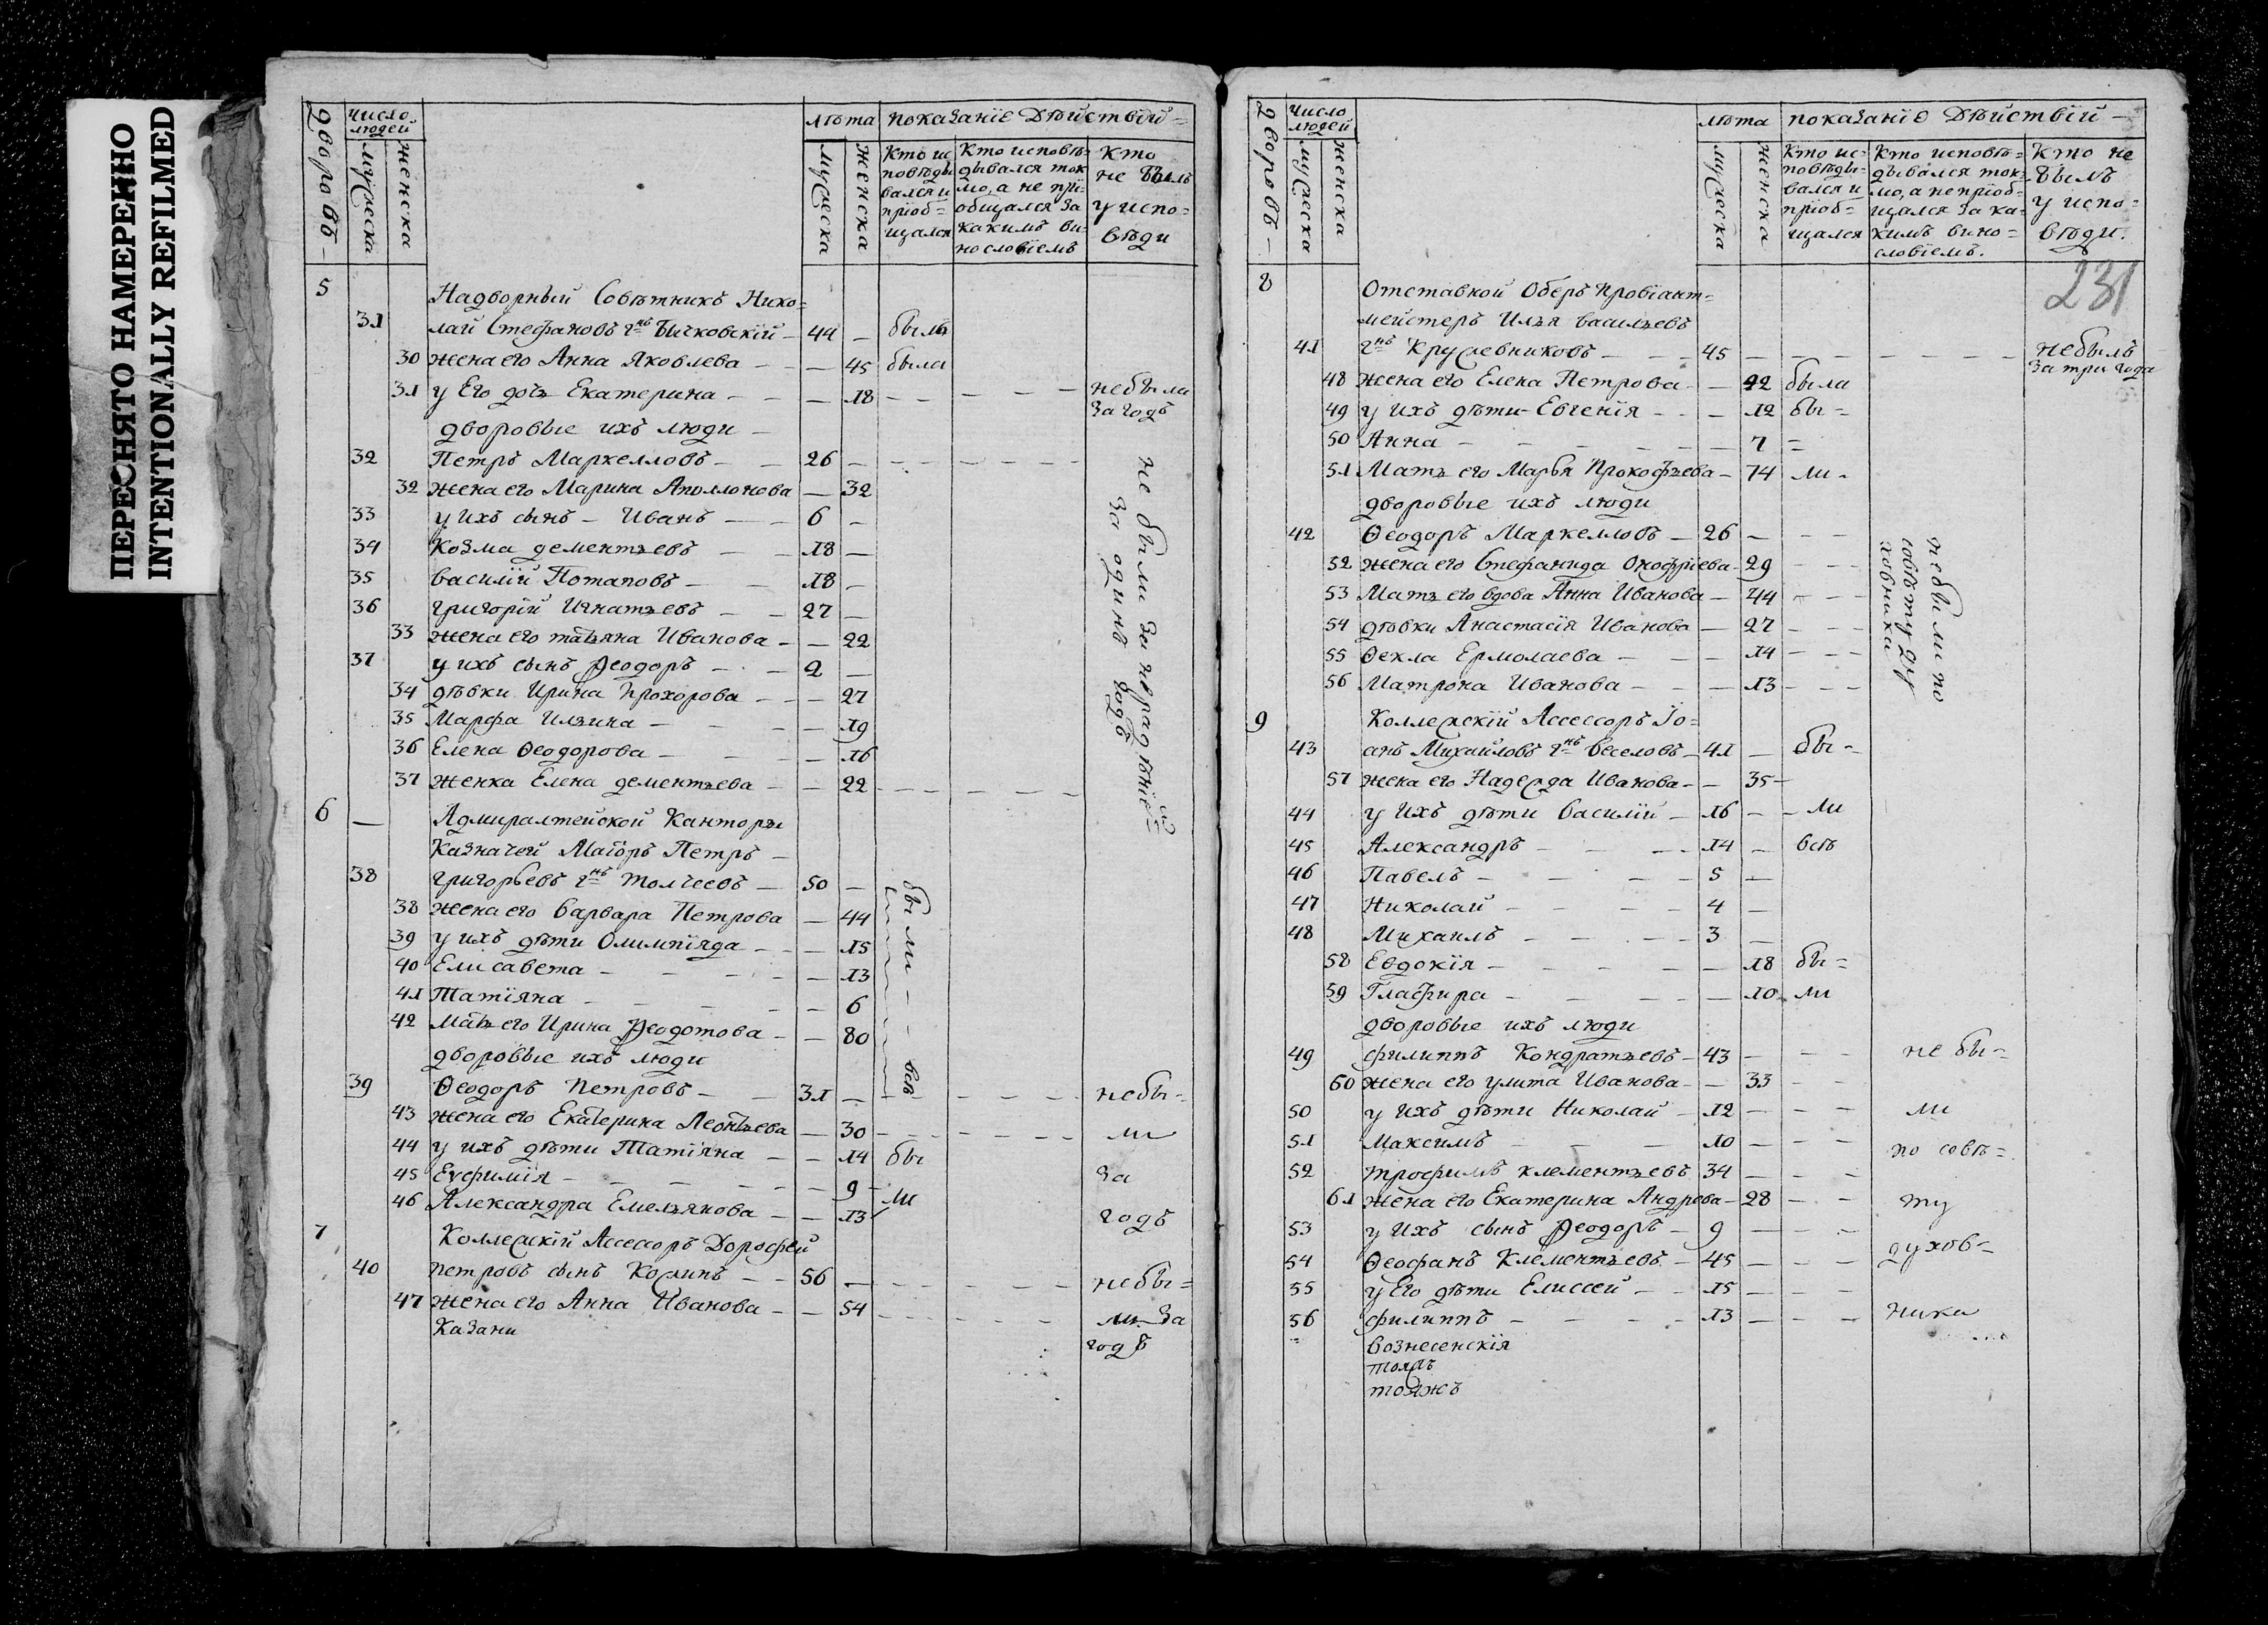 ПЕРЕСНЯТО НАМЕРЕННО
INTENTIONALLY REFILMED
дворовъ
число людей
мужеска
женска
лѣта
мужеска
женска
показаніе дѣйствій
Кто исповѣдывался и пріобщался
Кто исповѣдывался токмо, а не пріобщался за какимъ винословіемъ
Кто не былъ у исповѣди
5 Надворный Совѣтникъ Нико=
31 лай Стефановъ гнъ Бычковскій 44 — былъ
30 жена его Анна Яковлева — 45 была
31 у Его дочь Екатерина — 18 не была за годъ
дворовые ихъ люди
32 Петръ Маркелловъ — 26 —
32 жена его Марина Аполлонова — 32
33 у ихъ сынъ Иванъ — 6 —
34 Козма дементьевъ — 18 —
35 василій Потаповъ — 18 —
36 григорій Игнатьевъ — 27 —
33 жена его татьяна Иванова — 22
37 у ихъ сынъ Ѳеодоръ — 2 —
34 дѣвки Ирина Прохорова — 27
35 Марфа Ильина — 19
36 Елена Ѳеодорова — 16
37 женка Елена дементьева — 22
не были за нерадѣніемъ
за одинъ годъ
6 — Адмиралтейской Канторы
Казначей Маіоръ Петръ
38 григорьевъ гнъ Толчеевъ — 50 —
38 жена его варвара Петрова — 44
39 у ихъ дѣти Олимпіяда — 15
40 Елисавета — 13
41 Татіяна — 6
42 мать его Ирина Ѳеодотова — 80
были всѣ
дворовые ихъ люди
39 Ѳеодоръ Петровъ — 31 — не бы=
43 жена его Екатерина Леонтьева — 30 ли
44 у ихъ дѣти Татіяна — 14 бы
45 Еуфимія — 9 за
46 Александра Емельянова — 13 ли годъ
7 Коллежскій Ассессоръ Дорофей
40 петровъ сынъ Кожинъ — 56 — не бы=
47 жена его Анна Иванова — 54 ли за
Казани годъ
дворовъ
число людей
мужеска
женска
лѣта
мужеска
женска
показаніе дѣйствій
Кто исповѣдывался и пріобщался
Кто исповѣдывался токмо, а не пріобщался за какимъ винословіемъ.
Кто не былъ у исповѣди.
231
8 Отставной Оберъ провіант=
мейстеръ Илья васильевъ
41 гнъ Кружевниковъ — 45 — не былъ
за три года
48 жена его Елена Петрова — 42 была
49 у ихъ дѣти Евгенія — 12 бы=
50 Анна — 7 =
51 Мать его Марья Прокофьева — 74 ли
дворовые ихъ люди
42 Ѳеодоръ Маркелловъ — 26 —
52 жена его Стефанида Онофріева 29
53 Мать его вдова Анна Иванова — 44
54 дѣвки Анастасія Иванова — 27
55 Ѳекла Ермолаева — 14
56 Матрона Иванова — 13
не были по
совѣту ду
ховника
9 Коллежскій Ассессоръ Іо=
43 анъ Михайловъ гнъ Веселовъ 41 — бы=
57 жена его Надежда Иванова — 35
44 у ихъ дѣти василій — 16 — ли
45 Александръ — 14 — всѣ
46 Павелъ — 5 —
47 Николай — 4 —
48 Михаилъ — 3 —
58 Евдокія — 18 бы=
59 Глафира — 10 ли
дворовые ихъ люди
49 филиппъ Кондратьевъ — 43 — не бы=
60 жена его улита Иванова — 33
50 у ихъ дѣти Николай — 12 — ли
51 Максимъ — 10 —
52 трофимъ клементьевъ 34 — по совѣ=
61 жена его Екатерина Андрева — 28 ту
53 у ихъ сынъ Ѳеодоръ — 9 —
54 Ѳеофанъ Клементьевъ — 45 — духов=
55 у Его дѣти Елиссей — 15 —
56 филиппъ — 13 — ника
вознесенскія
тояжъ
тояжъ